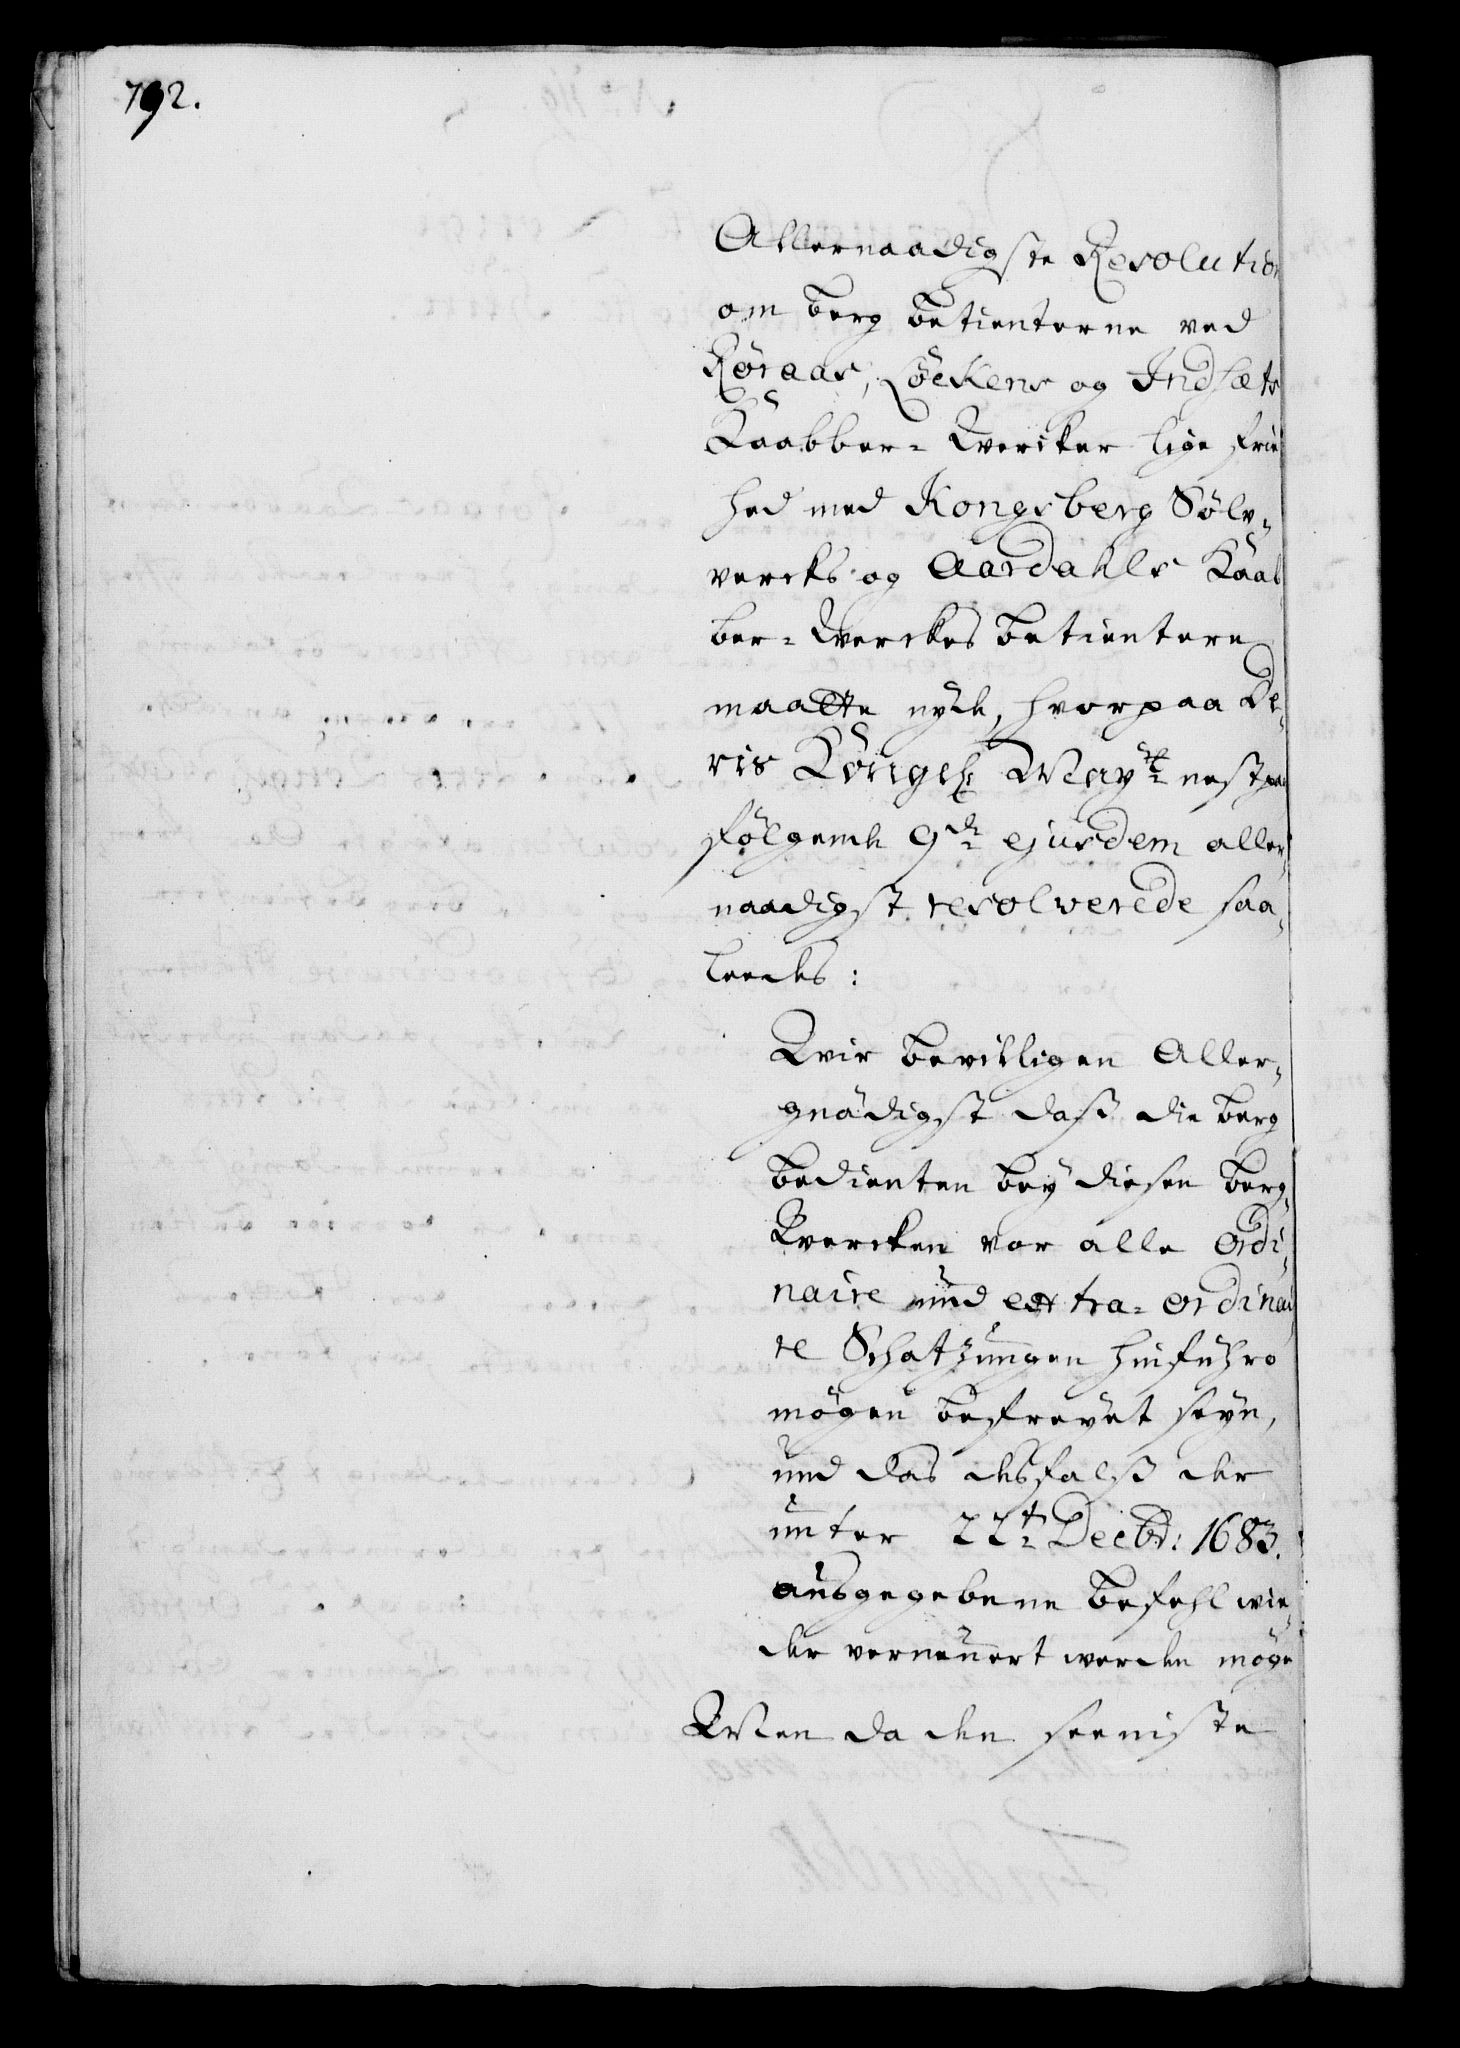 792.
Allernaadigste Resolution
om berg betienterne ved
Røraas, Löckens og Indsæts
Kaabber-Wercker lige frie
hed med Kongsberg Sölv-
vercks og Aardahls Kaab
ber-Werckes betientere
maatte nyde, hvorpaa De-
ris Kongel: May^tt nest paa
fölgende 9^de ejusdem aller-
naadigst resolverede saa-
leedes:
Wir bewilligen Aller-
gnädigst daß die berg
bedienten bey diesen berg-
Wercken vor alle ordi-
naire und extra-ordinai
re Schatzungen hinführo
mögen befreyet seyn,
und das desfalß der
unter 22^t Decbr: 1683.
ausgegebene befehl wie-
der verneuert werden möge
Men da den seeniste